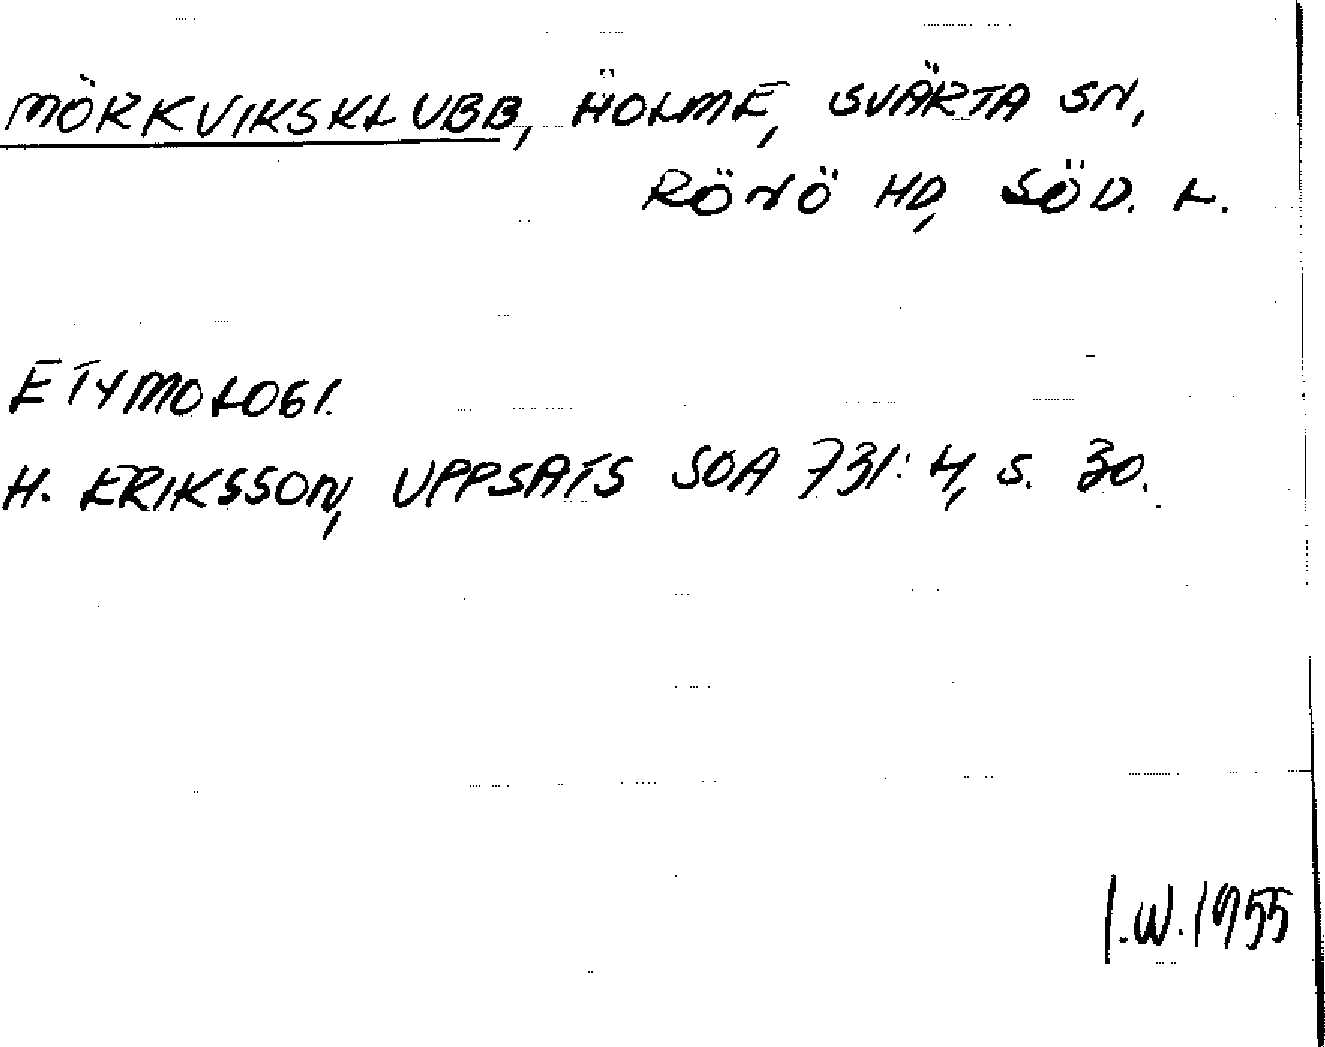 MÖRKVIKSKLUBB, HOLME, SVÄRTA SN,
RÖNÖ HD, SÖD. L.
ETYMOLOGI.
H. ERIKSSON, UPPSATS SOA 731: 4, S. 30.
I.W. 1955